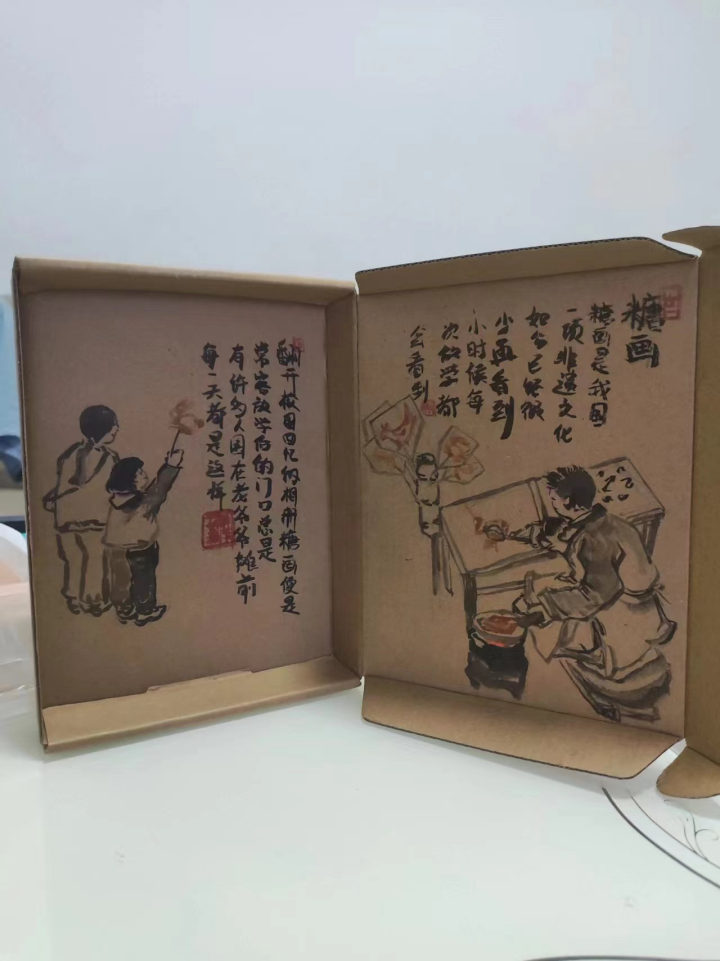 糖画
糖画是我国
一项非遗文化
如今已经很
少再看到
小时候每
次放学都
会看到
翻开校园回忆的相册糖画便是
常客放学后的门口总是
有许多人围在老爷爷摊前
每一天都是这样